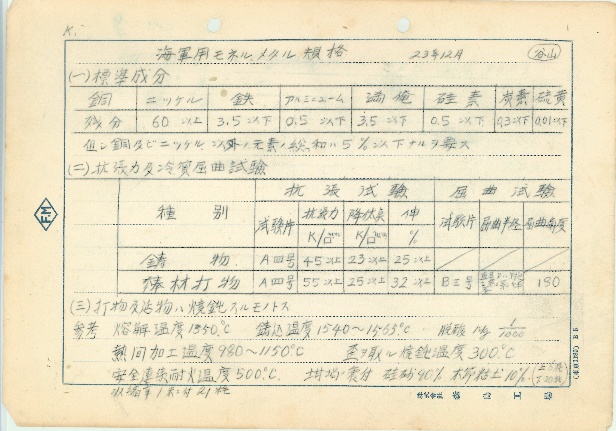 K.
海軍用モネルメタル規格 23年12月 谷山
(一)標準成分
銅 ニッケル 鉄 アルミニューム 満俺 硅素 炭素 硫黄
残分 60以上 3.5以下 0.5以下 3.5以下 0.5以下 0.3以下 0.01以下
但シ銅及ビニッケル以外ノ元素ノ総和ハ5%以下ナルヲ要ス
(二)抗張力及冷質屈曲試験
種別 抗張試験 屈曲試験
試験片 抗張力 降伏点 伸 試験片 屈曲半径 屈曲角度
K/□mm K/□mm %
鋳物 A四号 45以上 23以上 25以上
棒材打物 A四号 55以上 25以上 32以上 B三号 180
(三)打物及鋳物ハ焼鈍スルモノトス
参考 熔解温度1350°C 鋳込温度1540〜1565°C 脱酸 Mg 1/1000
熱間加工温度980〜1150°C 歪ヲ取ル焼鈍温度300°C
安全連続耐火温度500°C. 坩堝裏付 硅砂90% 木節粘土10%
株式会社
B5
FM